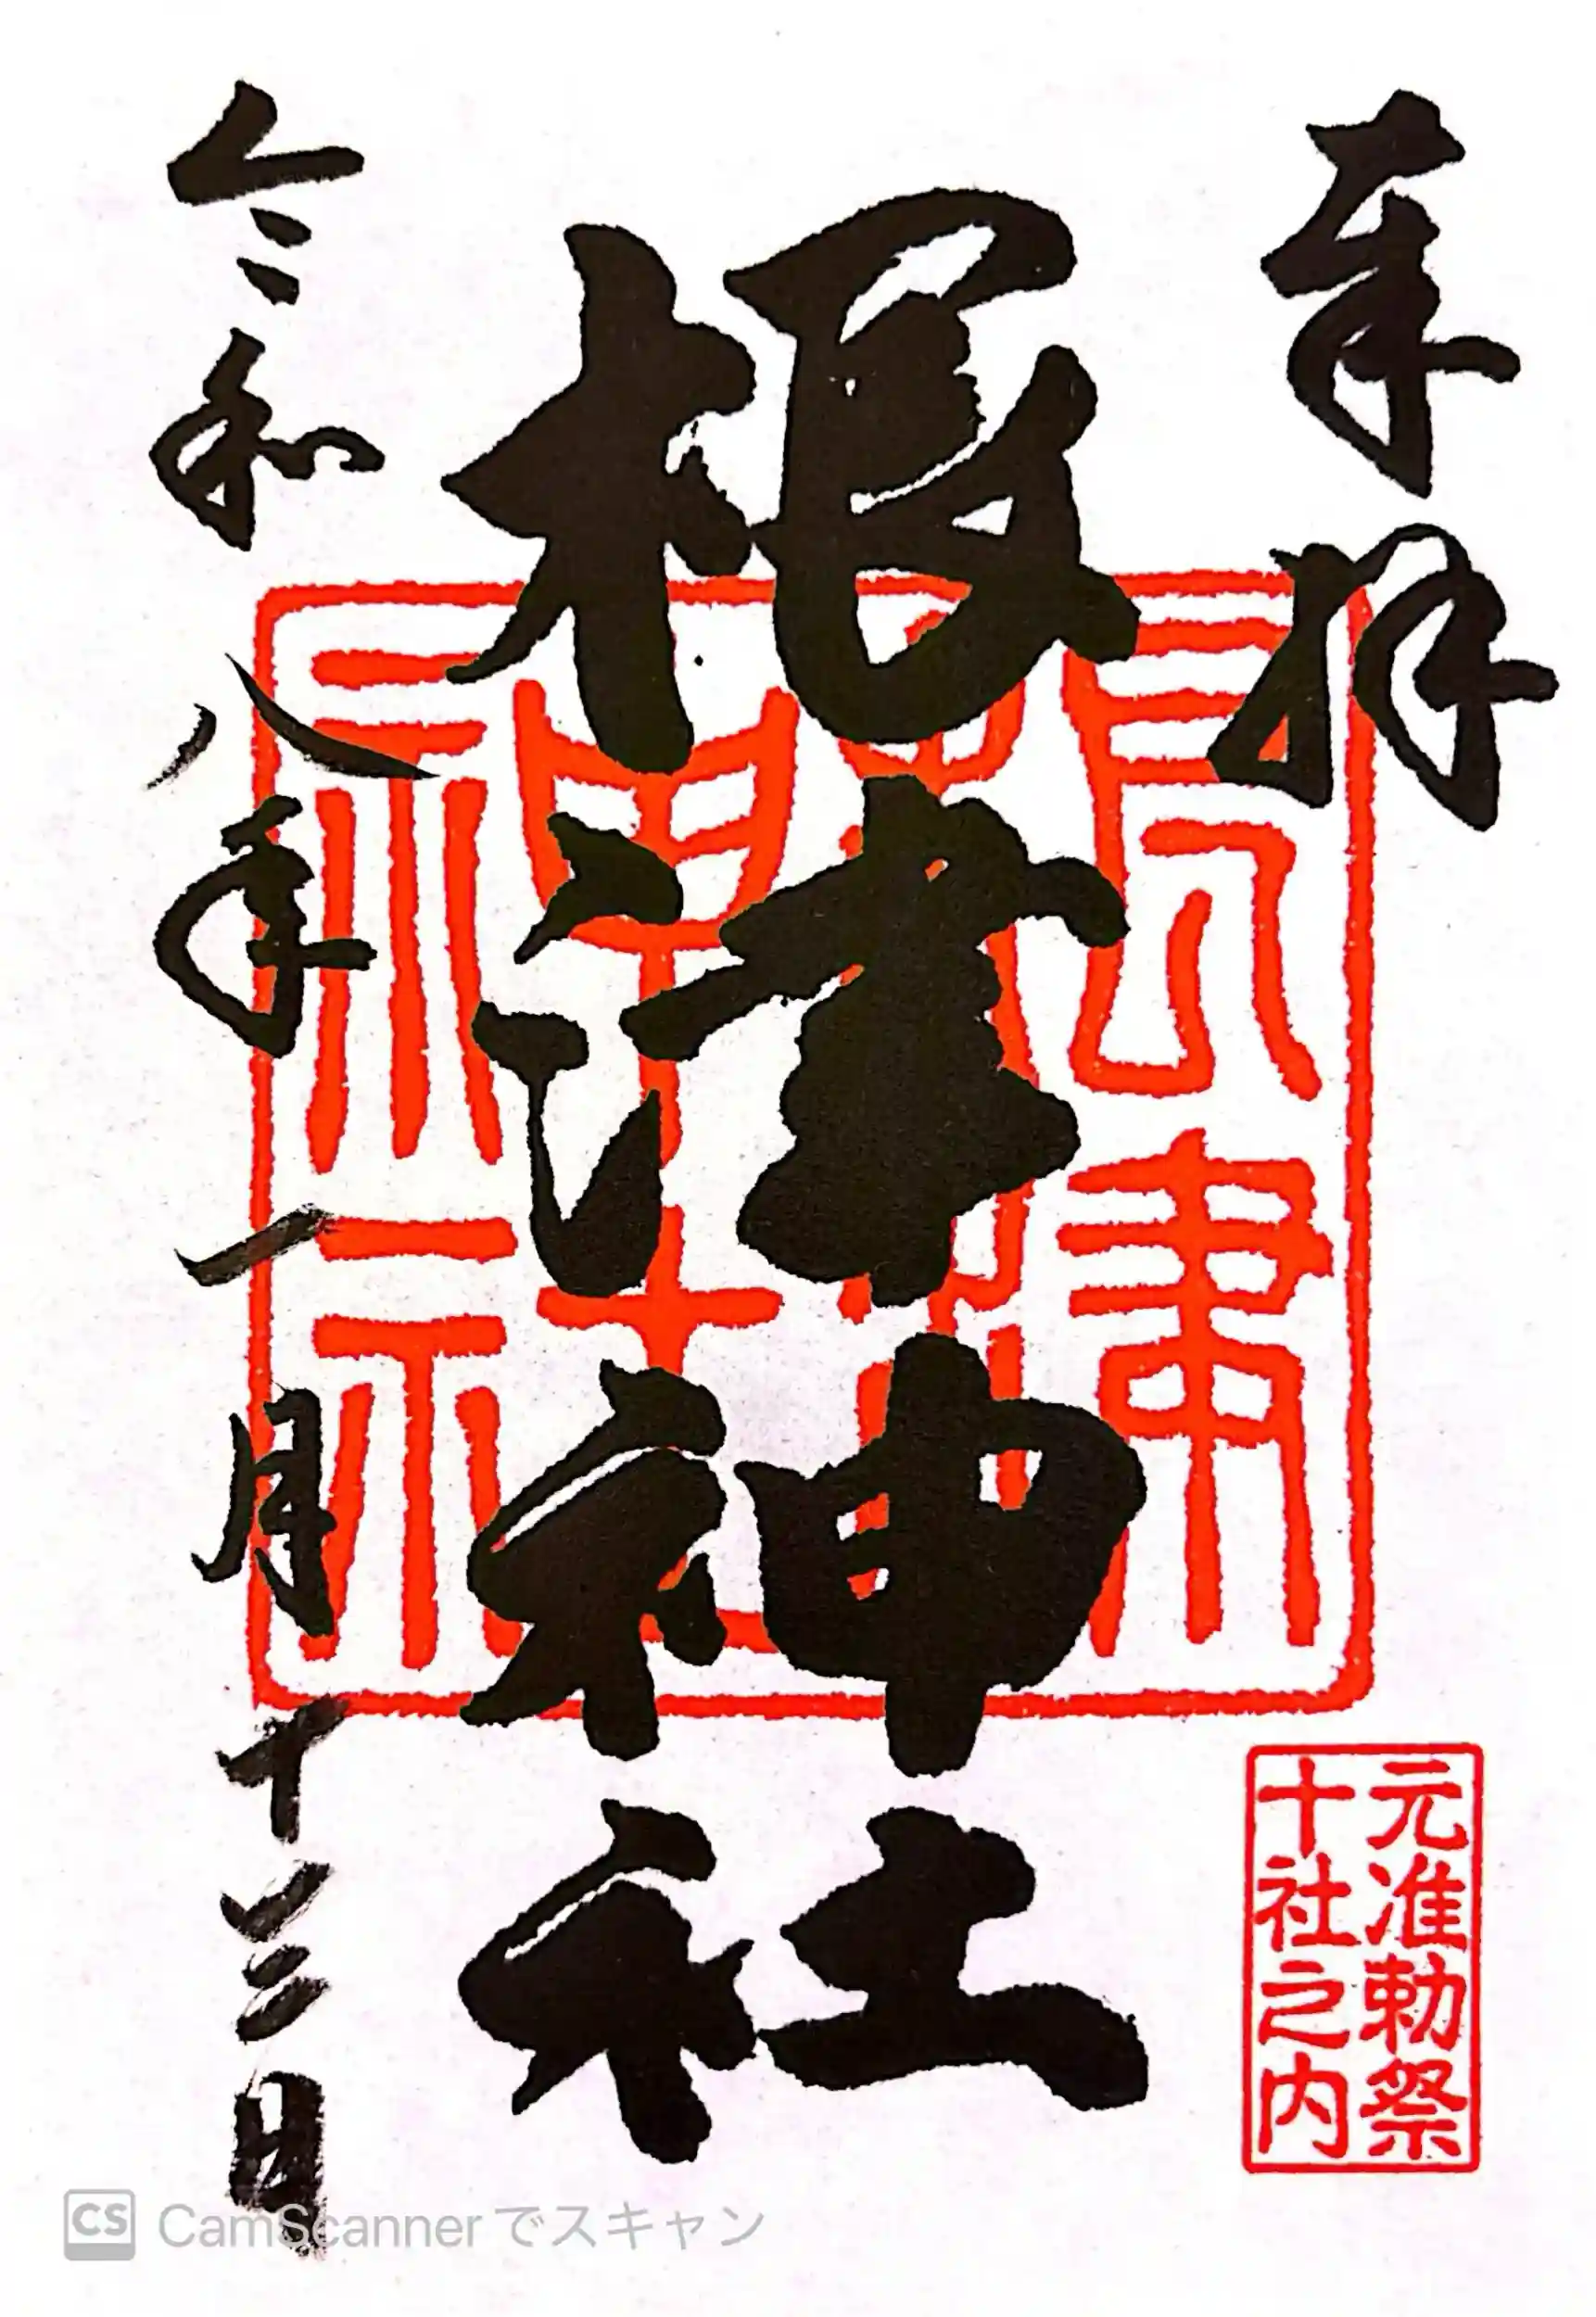 奉拝
根津神社
令和八年一月十三日
根津
神社
元准勅祭
十社之内
CS CamScannerでスキャン